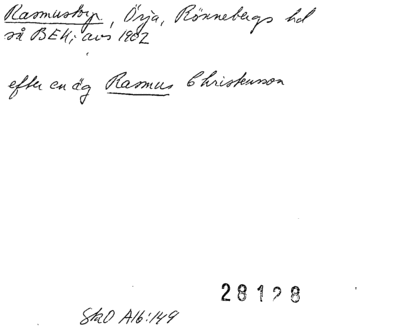 Rasmustorp, Örja, Rönnebergs hd
så BEK; avs 1902
efter en äg Rasmus Christensson
28128
SkO A16:149